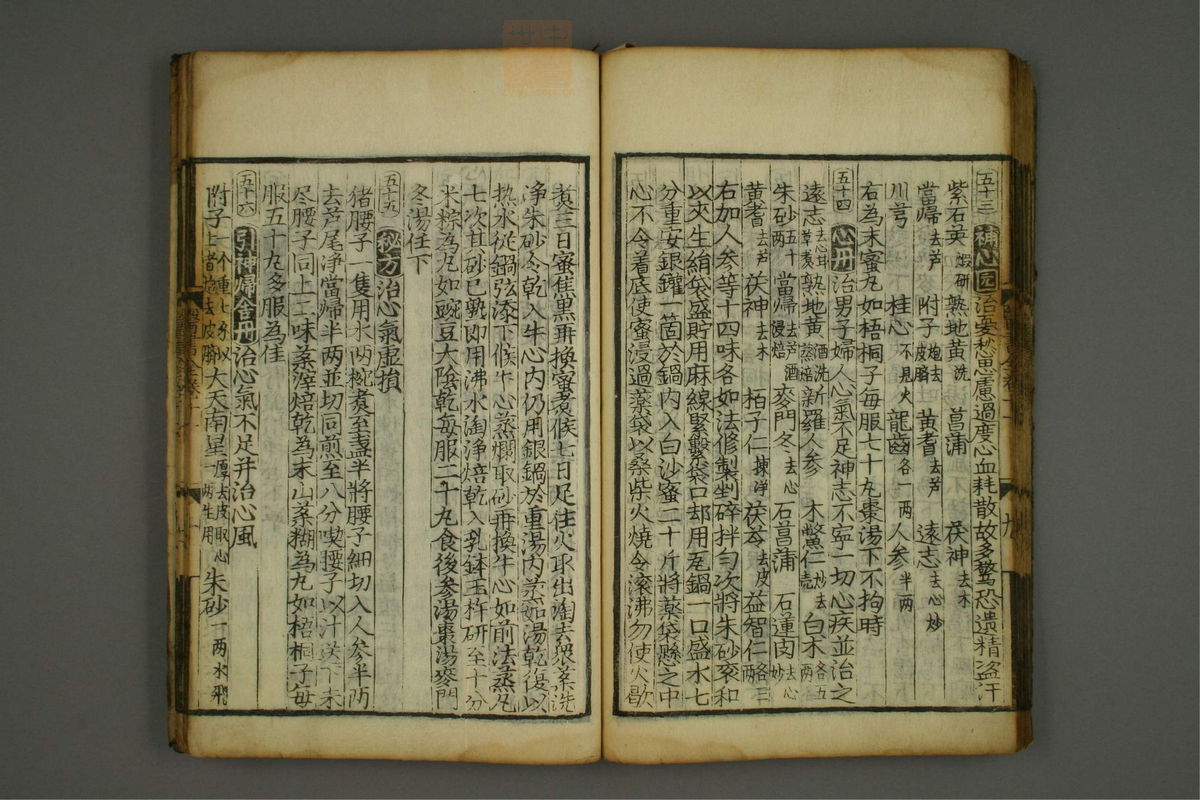 五十三 補心圓 治憂愁思慮過度心血耗散故多驚恐遺精盗汗
紫石英煅研 熟地黃洗 菖蒲 茯神去木
當歸去芦 附子炮去皮臍 黃耆去芦 遠志去心炒
川芎 桂心不見火 龍齒各一两 人参半两
右為末蜜丸如梧桐子每服七十丸棗湯下不拘時
五十四 心丹 治男子婦人心氣不足神志不寧一切心疾並治之
遠志去心耳草煑 熟地黃酒洗蒸焙 新羅人参 木鱉仁炒去壳 白术各五两
朱砂五十两 當歸去芦酒浸焙 麥門冬去心 石菖蒲 石蓮肉去心炒
黃耆去芦 茯神去木 栢子仁揀淨 茯苓去皮 益智仁各三两
右加人参等十四味各如法修製剉碎拌匀次將朱砂衮和
以夾生絹袋盛貯用麻線緊繫袋口却用瓦鍋一口盛水七
分重安銀鑵一箇於鍋内入白沙蜜二十斤將藥袋懸之中
心不令着底使蜜浸過藥袋以桑柴火燒令滚沸勿使火歇
煑三日蜜焦黒再換蜜煑候七日足住火取出淘去衆藥洗
净朱砂令乾入牛心内仍用銀鍋於重湯内蒸如湯乾復以
热水從鍋弦添下候牛心蒸爛取砂再換牛心如前法蒸凡
七次其砂已熟即用沸水淘净焙乾入乳鉢玉杵研至十分
米粽為丸如豌豆大陰乾每服二十丸食後参湯棗湯麥門
冬湯任下
五十五 秘方 治心氣虚損
猪腰子一隻用水两椀煑至盞半將腰子細切入人参半两防
去芦尾净當歸半两並切同煎至八分喫腰子以汁送下未
尽腰子同上二味藥滓焙乾為末山藥糊為丸如梧桐子每
服五十丸多服為佳
五十六 引神歸舍丹 治心氣不足并治心風
附子一个重七錢以上者炮去皮臍 大天南星厚去皮取心一两生用 朱砂一两水飛